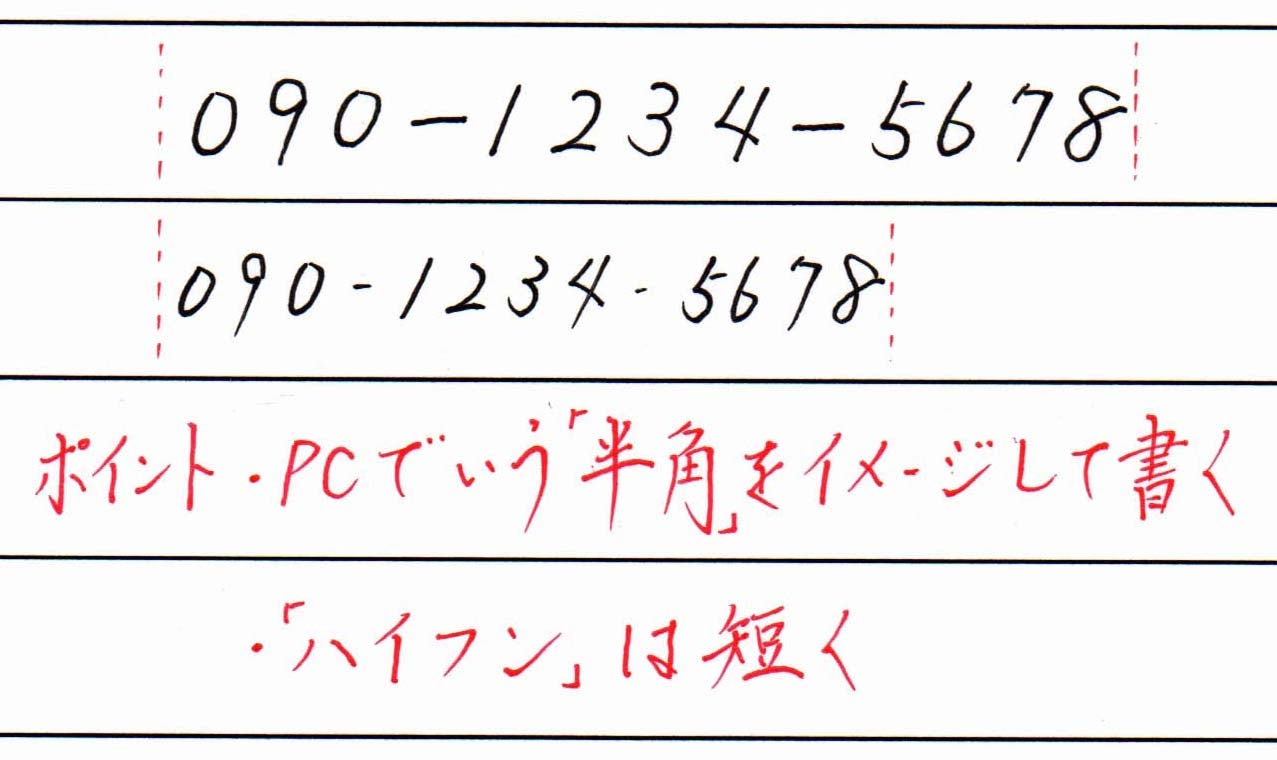 090-1234-5678
090-1234-5678
ポイント・PCでいう「半角」をイメージして書く
・「ハイフン」は短く